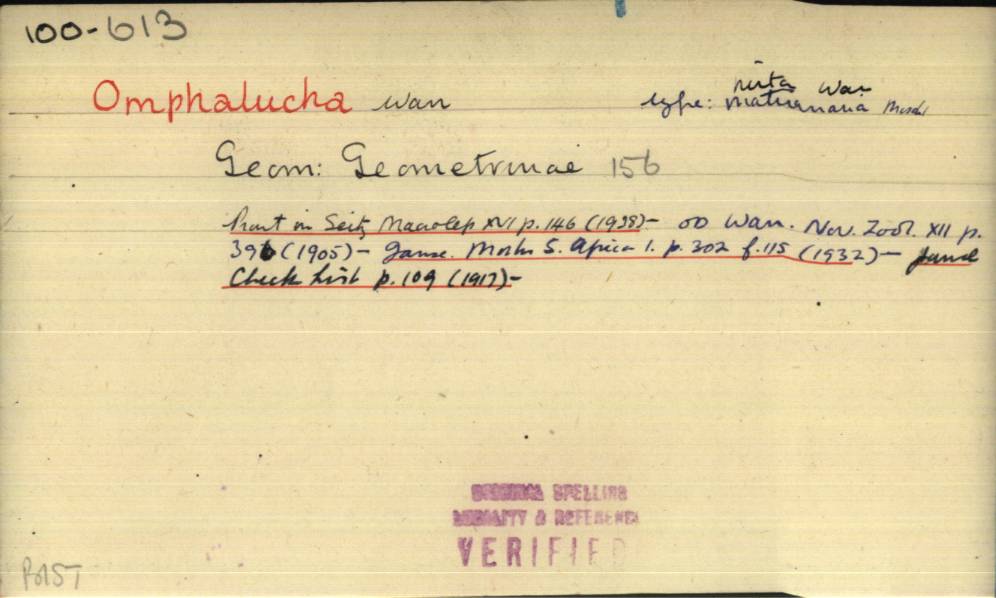 100-613
Omphalucha Warr
nieta Warr
type: maturnaria Mosch
Geom: Geometrinae 156
Prout in Seitz Macrolep XVI p. 146 (1938)- OD Warr. Nov. Zool. XII p.
396 (1905)- Janse. Moths S. Africa 1. p. 302 f. 115 (1932)- Janse
Check List p. 109 (1917)-
ORIGINAL SPELLING
PRIORITY & REFERENCE
VERIFIED